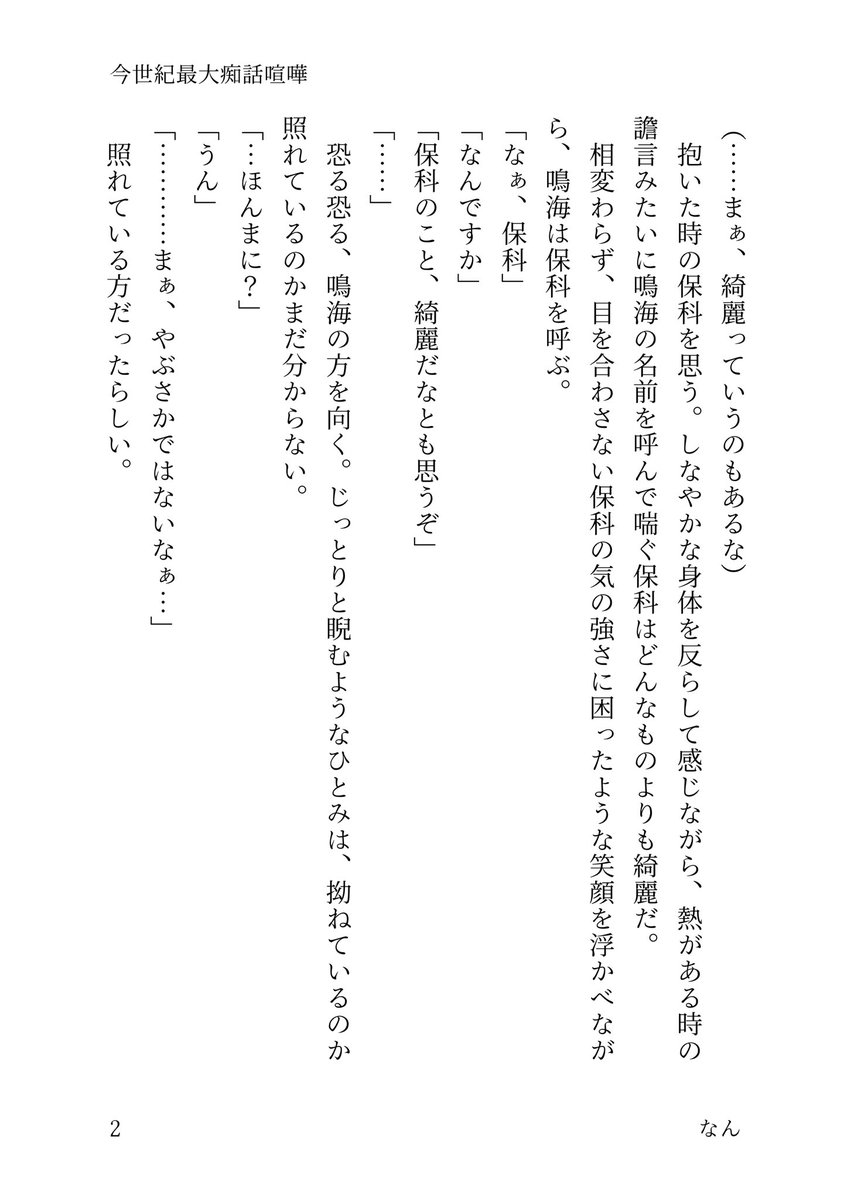 今世紀最大痴話喧嘩
(……まぁ、綺麗っていうのもあるな)
抱いた時の保科を思う。しなやかな身体を反らして感じながら、熱がある時の
譫言みたいに鳴海の名前を呼んで喘ぐ保科はどんなものよりも綺麗だ。
相変わらず、目を合わさない保科の気の強さに困ったような笑顔を浮かべなが
ら、鳴海は保科を呼ぶ。
「なぁ、保科」
「なんですか」
「保科のこと、綺麗だなとも思うぞ」
「……」
恐る恐る、鳴海の方を向く。じっとりと睨むようなひとみは、拗ねているのか
照れているのかまだ分からない。
「…ほんまに？」
「うん」
「…………まぁ、やぶさかではないなぁ…」
照れている方だったらしい。
2
なん